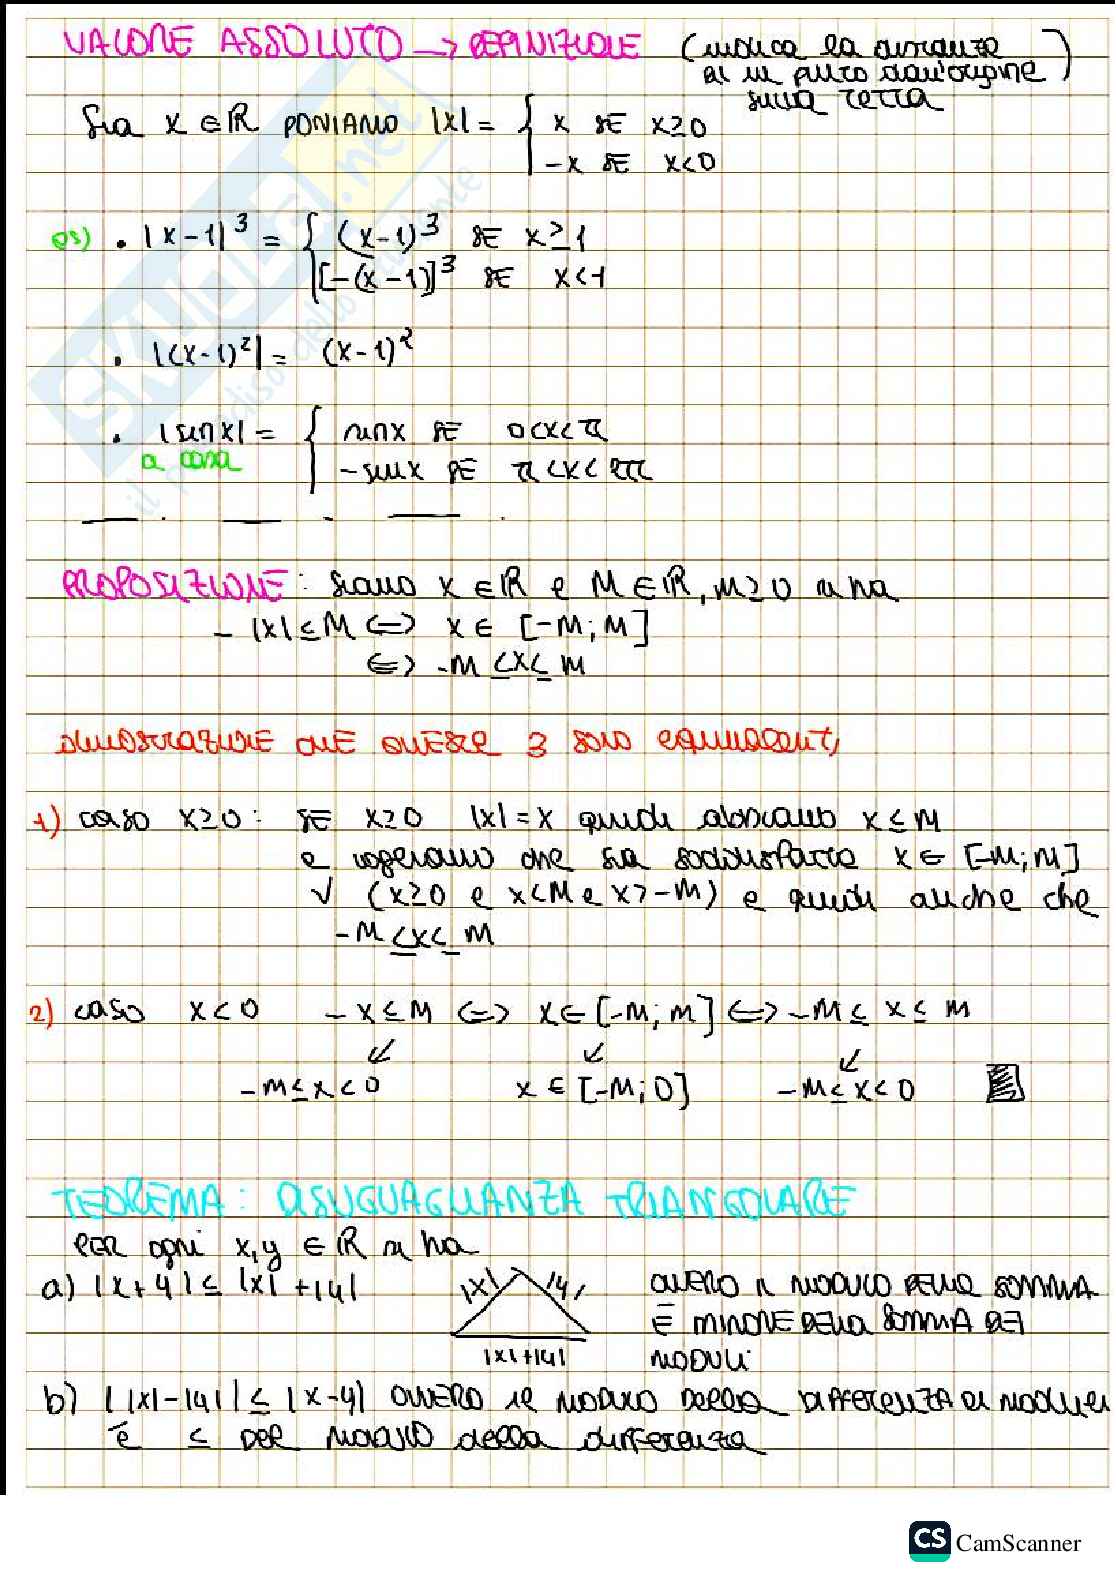 VALORE ASSOLUTO → DEFINIZIONE (indica la distanza
di un punto dall'origine
sulla retta)
Sia x ∈ ℝ PONIAMO |x| = { x SE x≥0
-x SE x<0
es) • |x-1|³ = { (x-1)³ SE x≥1
[-(x-1)]³ SE x<1
• |(x-1)²| = (x-1)²
• |sinx| = { sinx SE 0<x<π
a casa
-sinx SE π<x<2π
PROPOSIZIONE: siano x ∈ ℝ e M ∈ ℝ, M≥0 si ha
- |x| ≤ M ⇔ x ∈ [-M; M]
⇔ -M ≤ x ≤ M
DIMOSTRAZIONE CHE QUESTE 3 SONO equivalenti
1) caso x≥0: SE x≥0 |x|=x quindi abbiamo x ≤ M
e vogliamo che sia soddisfatta x ∈ [-M; M]
√ (x≥0 e x<M e x>-M) e quindi anche che
-M ≤ x ≤ M
2) caso x<0 -x ≤ M ⇔ x ∈ [-M; M] ⇔ -M ≤ x ≤ M
↙ ↙ ↙
-M ≤ x < 0 x ∈ [-M; 0] -M ≤ x < 0
TEOREMA: DISUGUAGLIANZA TRIANGOLARE
PER ogni x, y ∈ ℝ si ha
a) |x+y| ≤ |x| + |y| |x| |y| OVVERO IL MODULO DELLA SOMMA
È MINORE DELLA SOMMA DEI
|x|+|y| MODULI
b) ||x|-|y|| ≤ |x-y| OVVERO IL MODULO DELLA DIFFERENZA di moduli
è ≤ DEL MODULO della differenza
SKUOLA.net
il paradiso dello studente
CS CamScanner